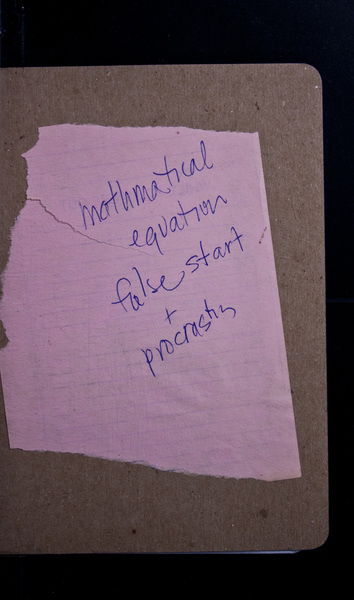 mathmatical
equation
false start
+
procrastin